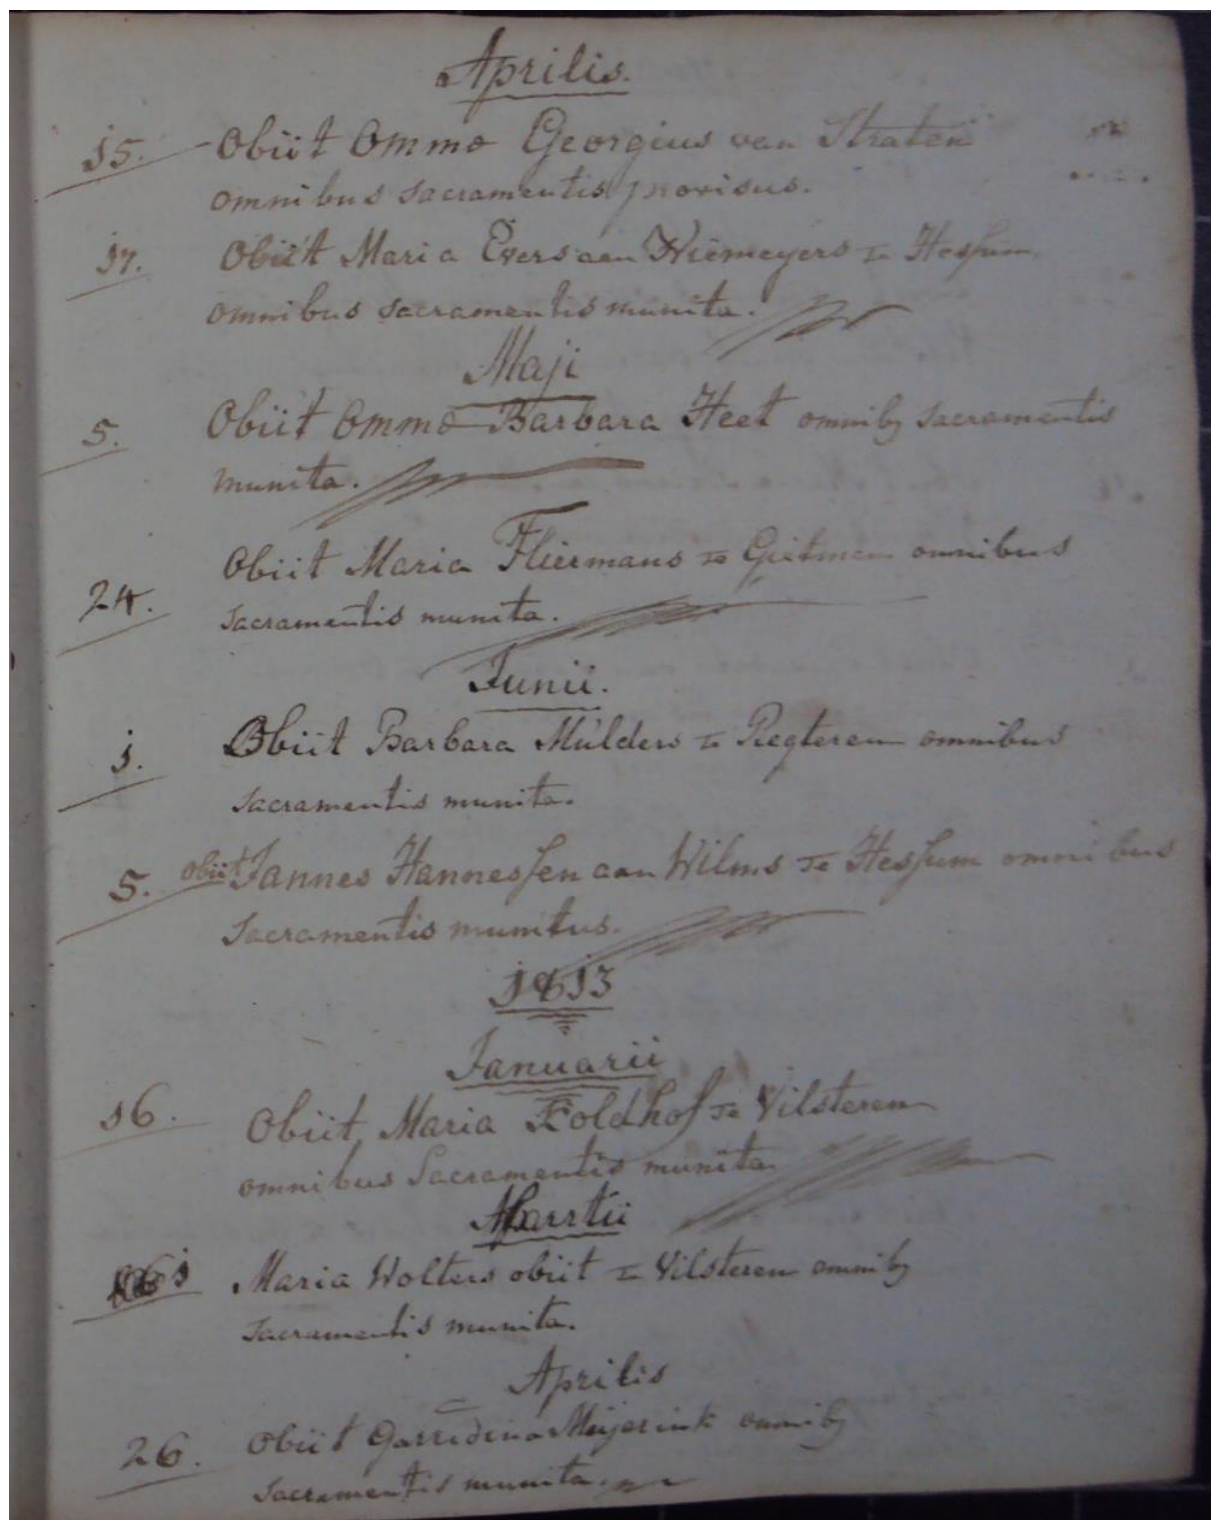 Aprilis.
15. Obiit Ommæ Georgius van Straten
omnibus sacramentis provisus.
17. Obiit Maria Evers aan Niemeyers te Hessum
omnibus sacramentis munita.
Maji
5. Obiit Ommæ Barbara Heet omnib9 sacramentis
munita.
24. Obiit Maria Fliermans te omnibus
sacramentis munita.
Junii.
1. Obiit Barbara Mulders te Regteren omnibus
sacramentis munita.
5. obiit Jannes Hannessen aan Wilms te Hessum omnibus
sacramentis munitus.
1813
Januarii
16. Obiit Maria Eoldhof te Vilsteren
omnibus Sacramentis munita
Martii
1 Maria Wolters obiit te Vilsteren omnib9
sacramentis munita.
Aprilis
26. Obiit Gerridina Meijerink omnib9
sacramentis munita.